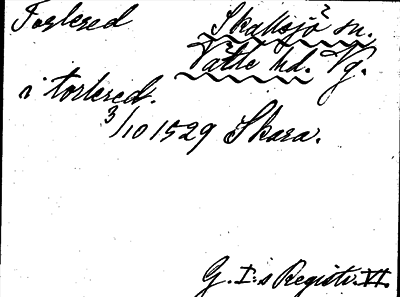 Torlered Skallsjö sn.
Vätle hd. Vg.
i torlered.
3/10 1529 Skara.
G. I:s Registr. VI.